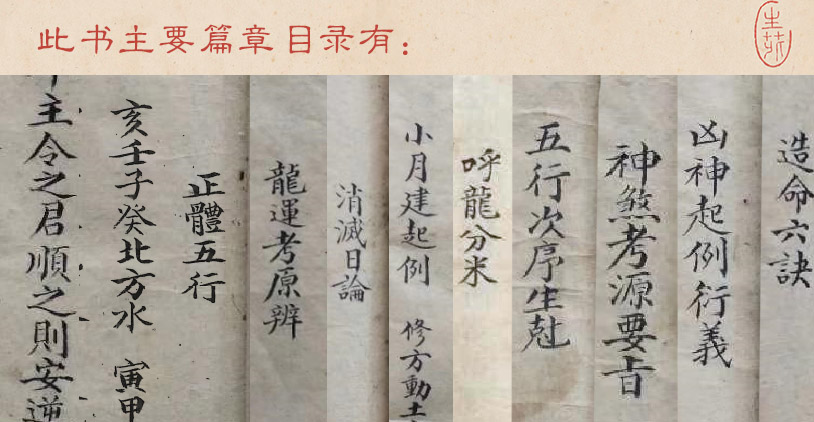 此书主要篇章目录有：
造命六訣
凶神起例衍義
神煞考源要旨
五行次序生尅
呼龍分米
小月建起例 修方動土
消滅日論
龍運考原辨
正體五行
亥壬子癸北方水 寅甲
主令之君順之則安逆